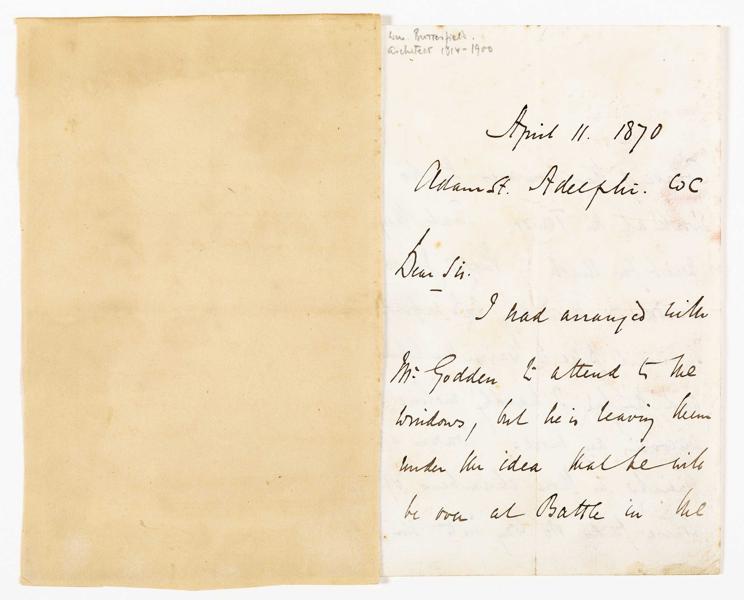 Wm. Butterfield.
Architect 1814-1900
April 11. 1870
Adam St. Adelphi. WC
Dear Sir.
I had arranged with
Mr. Godden to attend to the
windows, but he is leaving them
under the idea that he will
be over at Battle in the